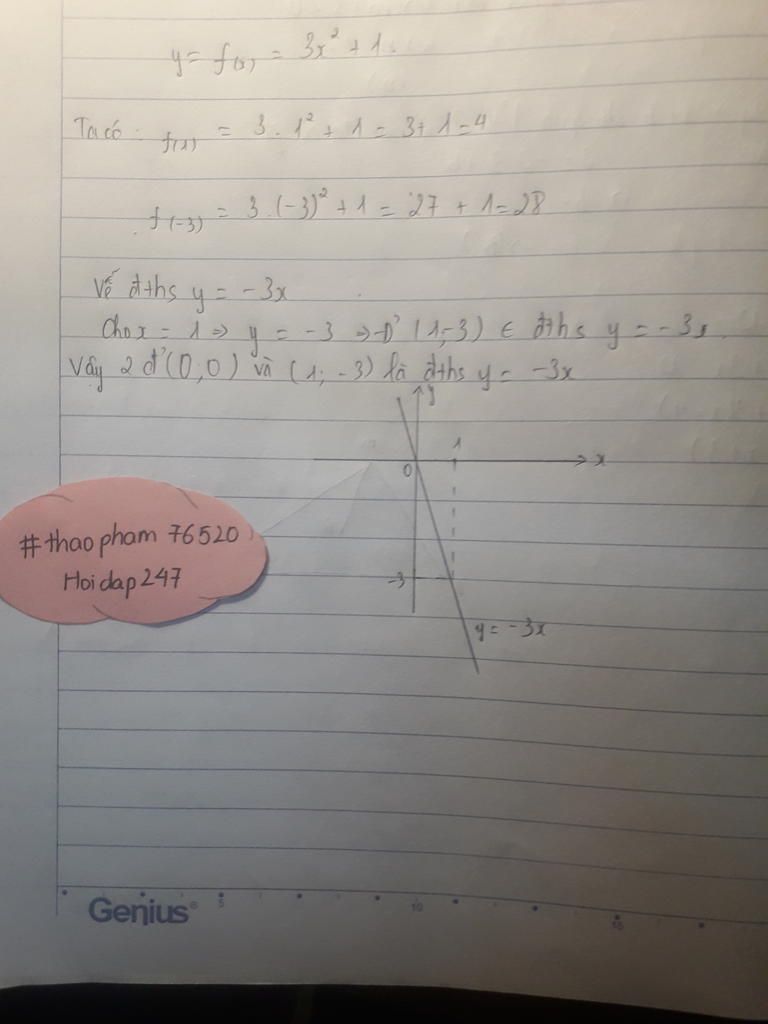 y = f(x) = 3x² + 1.
Ta có: f(1) = 3 . 1² + 1 = 3 + 1 = 4
f(-3) = 3 . (-3)² + 1 = 27 + 1 = 28
Vẽ đths y = -3x
Cho x = 1 => y = -3 => Đ' (1;-3) ∈ đths y = -3x
Vậy 2 đ' (0;0) và (1; -3) là đths y = -3x
y
1
0
x
-3
y = -3x
#thaopham 76520
Hoidap247
Genius®
5
10
15